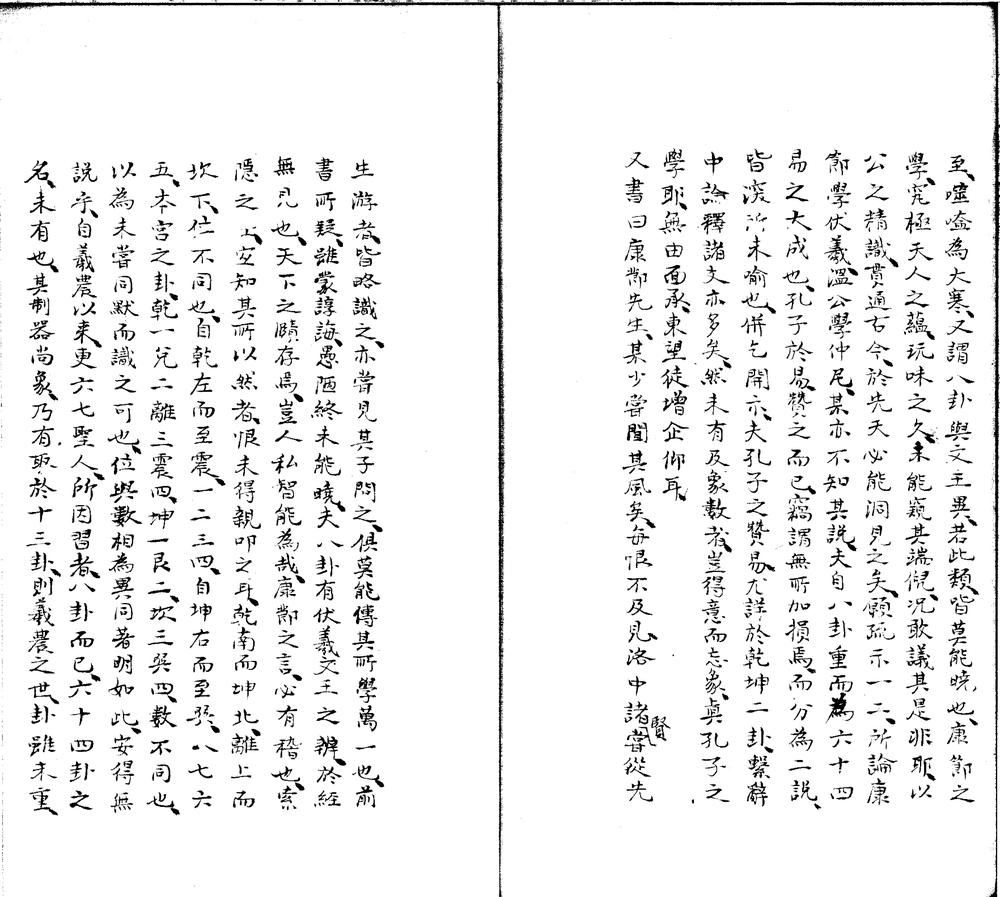 至、噬嗑為大寒、又謂八卦與文王異、若此類皆莫能曉也、康節之
學、究極天人之蘊、玩味之久、未能窺其端倪、况敢議其是非耶、以
公之精識、貫通古今、於先天必能洞見之矣、願疏示一二、所論康
節學伏羲、溫公學仲尼、某亦不知其說、夫自八卦重而為六十四
易之大成也、孔子於易、贊之而已、竊謂無所加損焉、而分為二說、
皆淺所未喻也、併乞開示、夫孔子之贊易、尤詳於乾坤二卦、繫辭
中論釋諸文亦多矣、然未有及象數者、豈得意而忘象、眞孔子之
學耶、無由面承、東望徒增企仰耳、
又書曰康節先生、某少嘗聞其風矣、每恨不及見、洛中諸賢嘗從先
生游者、皆略識之、亦嘗見其子問之、俱莫能傳其所學萬一也、前
書所疑、雖蒙諄誨、愚陋終未能曉、夫八卦有伏羲文王之辨、於經
無見也、天下之賾存焉、豈人私智能為哉、康節之言、必有稽也、索
隱之上、安知其所以然者、恨未得親叩之耳、乾南而坤北、離上而
坎下、位不同也、自乾左而至震、一二三四、自坤右而至巽、八七六
五、本宮之卦、乾一兌二離三震四、坤一艮二、坎三巽四、數不同也、
以為未嘗同默而識之可也、位與數相為異同著明如此、安得無
說乎、自羲農以来更六七聖人、所因習者、八卦而已、六十四卦之
名、未有也、其制器尚象、乃有取於十三卦、則羲農之世、卦雖未重、